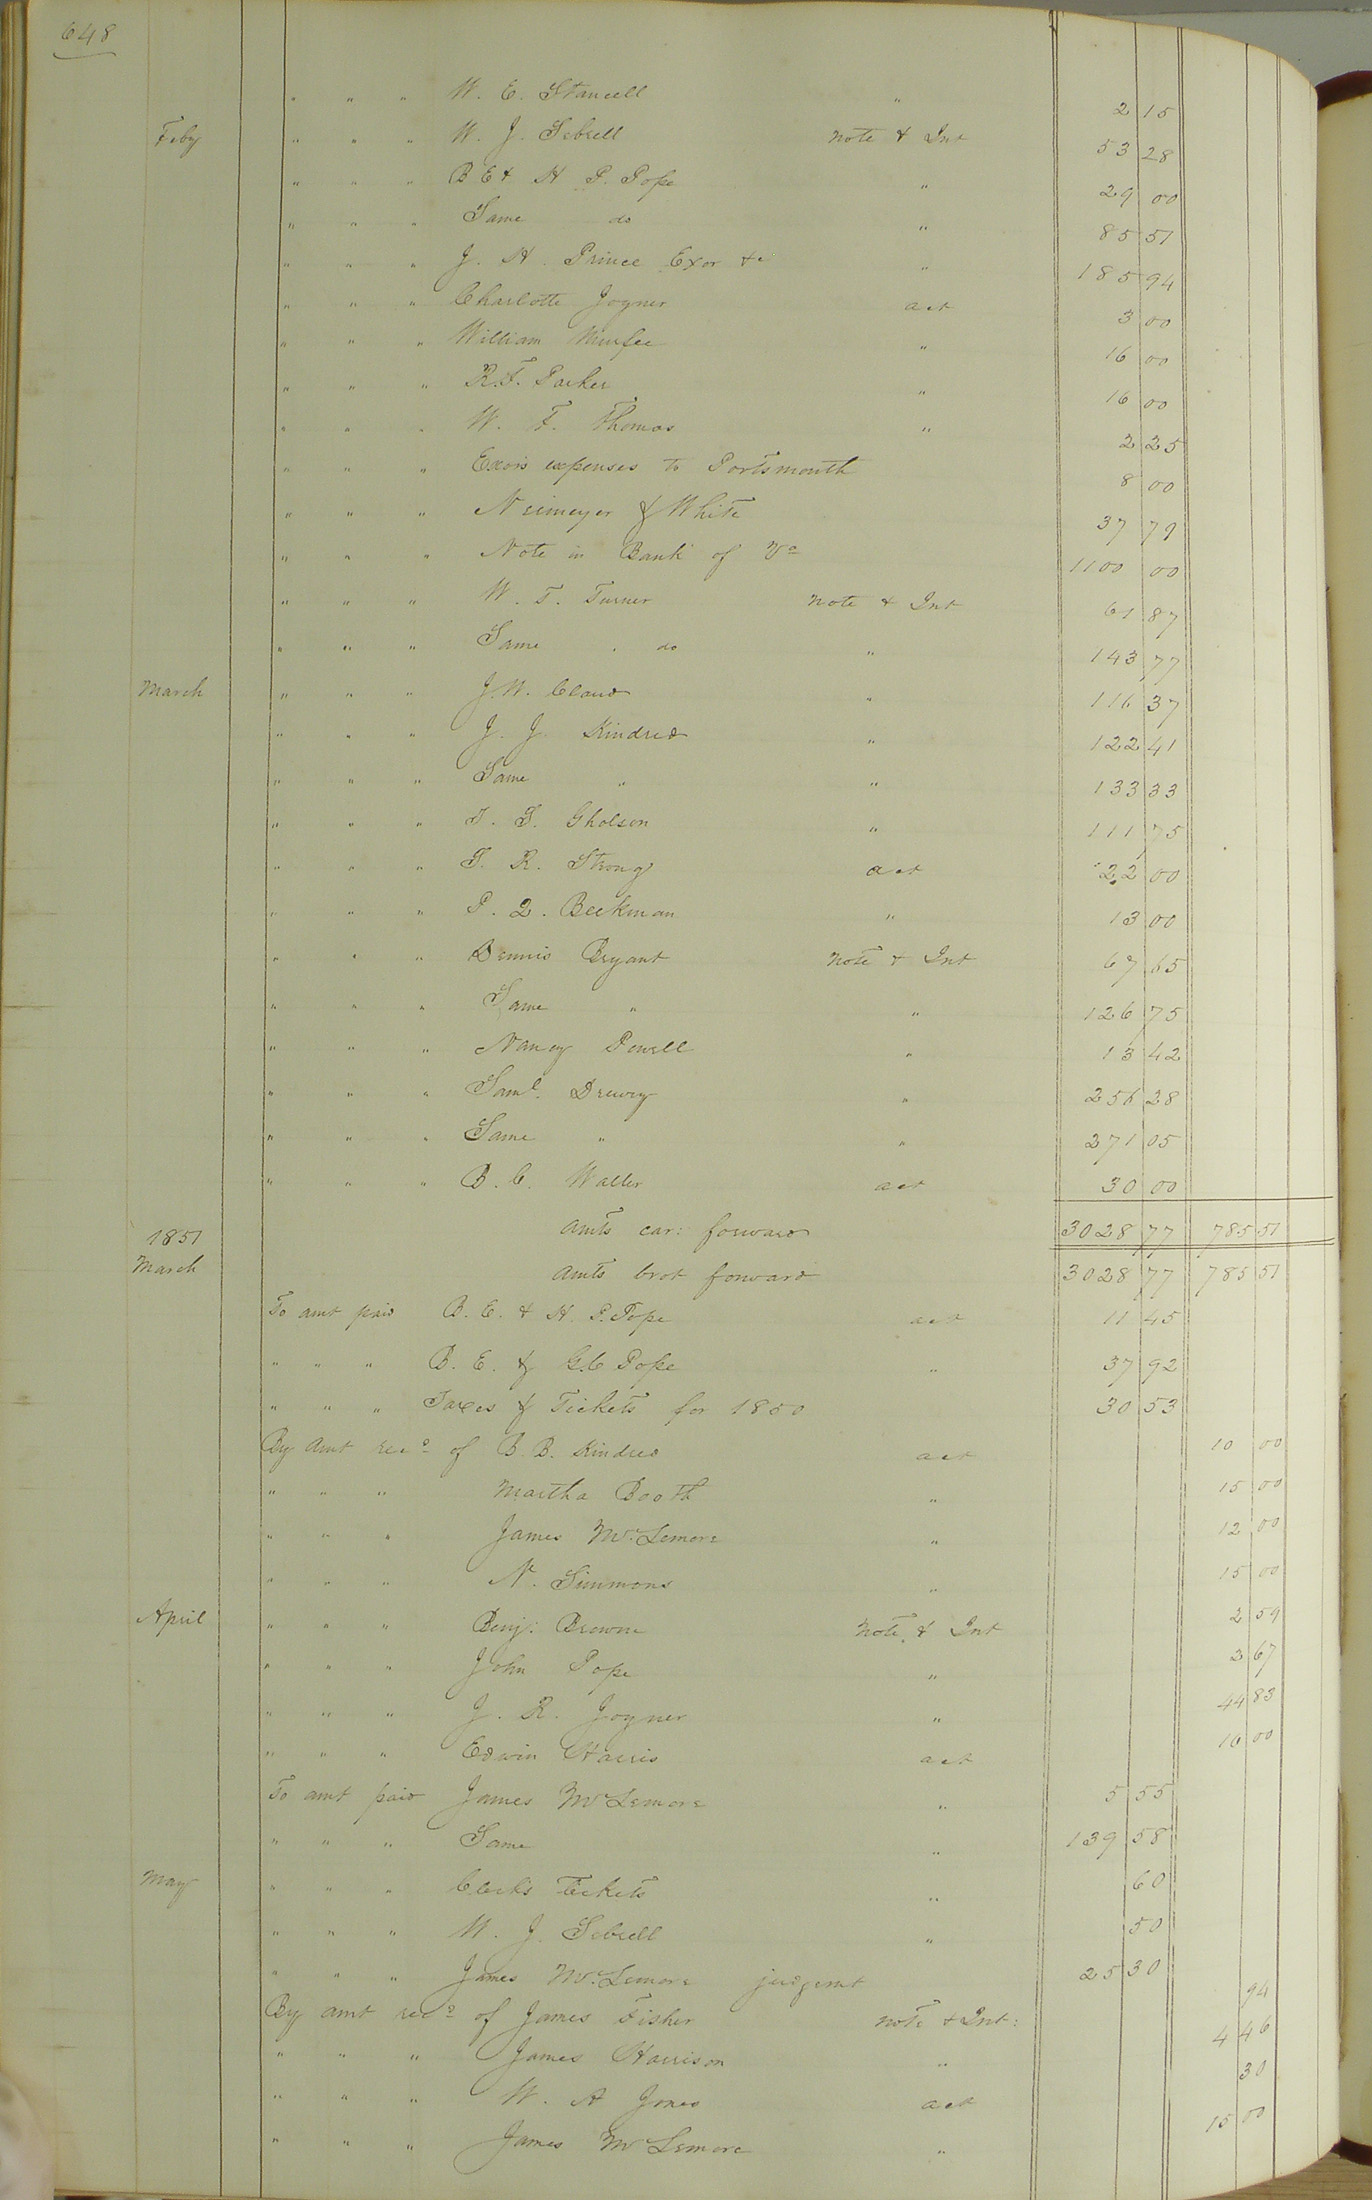 648
" " " W. E. Stancell " 2 15
Feby " " " W. J. Sebrell note & Int 53 28
" " " B E & H P. Pope " 29 00
" " " Same do " 85 51
" " " J. H. Prince Exor &c " 185 94
" " " Charlotte Joyner act 3 00
" " " William Murfee " 16 00
" " " R. F. Parker " 16 00
" " " W. F. Thomas " 2 25
" " " Exors expenses to Portsmouth 8 00
" " " Niemeyer & White 37 79
" " " Note in Bank of Va 1100 00
" " " W. T. Turner note & Int 61 87
" " " Same do " 143 77
March " " " J. W. Claud " 116 37
" " " J. J. Kindred " 122 41
" " " Same " " 133 33
" " " T. S. Gholson " 111 75
" " " S. R. Strong act 22 00
" " " P. Q. Beekman " 13 00
" " " Dennis Bryant note & Int 67 65
" " " Same " " 126 75
" " " Nancy Powell " 13 42
" " " Saml. Drewry " 256 28
" " " Same " " 271 05
" " " B. C. Waller act 30 00
1851 amts car: forward 3028 77 785 51
March amts brot forward 3028 77 785 51
To amt paid B. E. & H. P. Pope act 11 45
" " " B. E. & G. C Pope " 37 92
" " " Taxes & Tickets for 1850 30 53
By amt recd of B. B. Kindred act 10 00
" " " Martha Booth " 15 00
" " " James McLemore " 12 00
" " " N. Simmons " 15 00
April " " " Benj: Browne note & Int 2 59
" " " John Pope " 2 67
" " " J. R. Joyner " 44 83
" " " Edwin Harris act 16 00
To amt paid James McLemore " 5 55
" " " Same " 139 58
May " " " Clerks Tickets " 60
" " " W. J. Sebrell " 50
" " " James McLemore judgemt 25 30
By amt recd of James Fisher note & Int: 94
" " " James Harrison " 4 46
" " " W. A Jones act 30
" " " James McLemore " 15 00